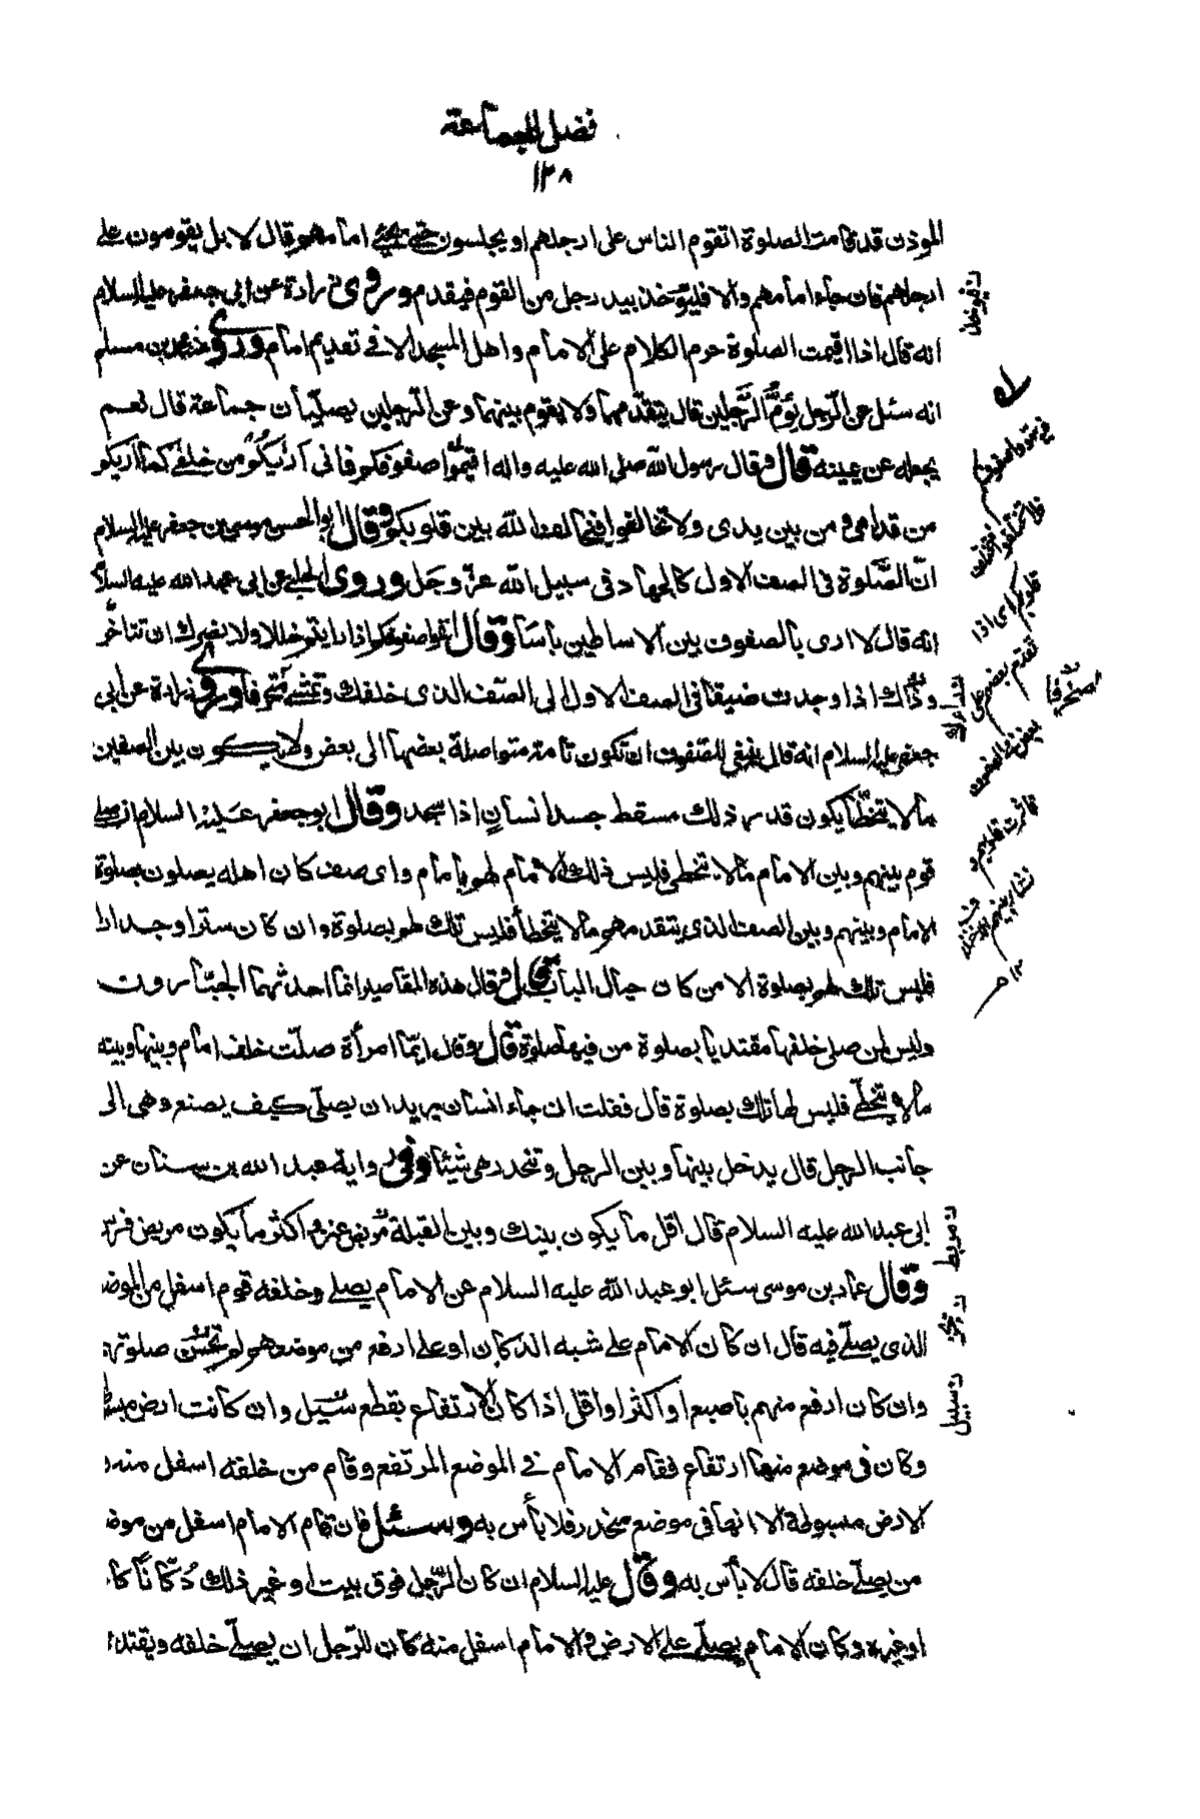 فضل الجماعة
١٢٨
الموذن قد قامت الصلوة اتقوم الناس على ارجلهم او يجلسون حتى يجئ امامهم قال لا بل يقومون على
ارجلهم فان جاء امامهم والا فليؤخذ بيد رجل من القوم فيقدم وروى زرارة عن ابى جعفر عليه السلام
انه قال اذا اقيمت الصلوة حرم الكلام على الامام واهل المسجد الا فى تقديم امام وروى محمد بن مسلم
انه سئل عن الرجل يؤم الرجلين قال يتقدمهما ولا يقوم بينهما وعن الرجلين يصليان جماعة قال نعم
يجعله عن يمينه قال وقال رسول الله صلى الله عليه واله اقيموا صفوفكم فانى اريكم من خلفى كما اريكم
من قدامى ومن بين يدى ولا تخالفوا فيخالف الله بين قلوبكم وقال ابو الحسن موسى بن جعفر عليه السلام
ان الصلوة فى الصف الاول كالجهاد فى سبيل الله عز وجل وروى الحلبى عن ابى عبد الله عليه السلام
انه قال لا ارى بالصفوف بين الاساطين باسا وقال اتموا صفوفكم اذا رايتم خللا ولا يضرك ان تتأخر
وراك اذا وجدت ضيقا فى الصف الاول الى الصف الذى خلفك وتمشى منحرفا وروى زرارة عن ابى
جعفر عليه السلام انه قال ينبغى للصفوف ان تكون تامة متواصلة بعضها الى بعض ولا يكون بين الصفين
ما لا يتخطا يكون قدر ذلك مسقط جسد انسان اذا سجد وقال ابو جعفر عليه السلام ان صلى
قوم بينهم وبين الامام ما لا يتخطى فليس ذلك الامام لهم بامام واى صف كان اهله يصلون بصلوة
الامام وبينهم وبين الصف الذى يتقدمهم ما لا يتخطا فليس تلك لهم بصلوة وان كان سترا او جدارا
فليس تلك لهم بصلوة الا من كان حيال الباب قال وقال هذه المقاصير انما احدثها الجبارون
وليس لمن صلى خلفها مقتديا بصلوة من فيها صلوة قال وقال ايما امرأة صلت خلف امام وبينها وبينه
ما لا يتخطى فليس لها تلك بصلوة قال فقلت ان جاء انسان يريد ان يصلى كيف يصنع وهى الى
جانب الرجل قال يدخل بينها وبين الرجل وتنحدر هى شيئا وفى رواية عبد الله بن سنان عن
ابى عبد الله عليه السلام قال اقل ما يكون بينك وبين القبلة مربض عنز واكثر ما يكون مربض فرس
وقال عمار بن موسى سئل ابو عبد الله عليه السلام عن الامام يصلى وخلفه قوم اسفل من الموضع
الذى يصلى فيه قال ان كان الامام على شبه الدكان او على ارفع من موضعهم لم تجز صلوتهم
وان كان ارفع منهم باصبع او اكثر او اقل اذا كان الارتفاع بقطع سيل وان كانت ارض مبسوطة
وكان فى موضع منها ارتفاع فقام الامام فى الموضع المرتفع وقام من خلفه اسفل منه و
الارض مبسوطة الا انها فى موضع منحدر فلا بأس به وسئل فان قام الامام اسفل من موضع
من يصلى خلفه قال لا بأس به وقال عليه السلام ان كان الرجل فوق بيت او غير ذلك دكانا كان
او غيره وكان الامام يصلى على الارض والامام اسفل منه كان للرجل ان يصلى خلفه ويقتدى